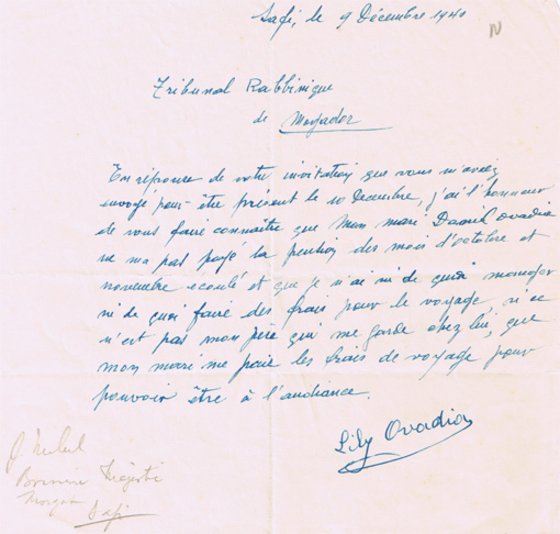 Safi, le 9 Décembre 1940
N
Tribunal Rabbinique
de Mogador
En réponse de votre invitation que vous m'avez
envoyé pour être présent le 10 Decembre, j'ai l'honneur
de vous faire connaître que mon mari David Ovadia
ne ma pas payé la pension des mois d'octobre et
novembre ecoulé et que je n'ai ni de quoi manger
ni de quoi faire des frais pour le voyage si ce
n'est pas mon père qui me garde chez lui, que
mon mari me paie les frais de voyage pour
pouvoir être à l'audiance.
Lily Ovadia
Safi